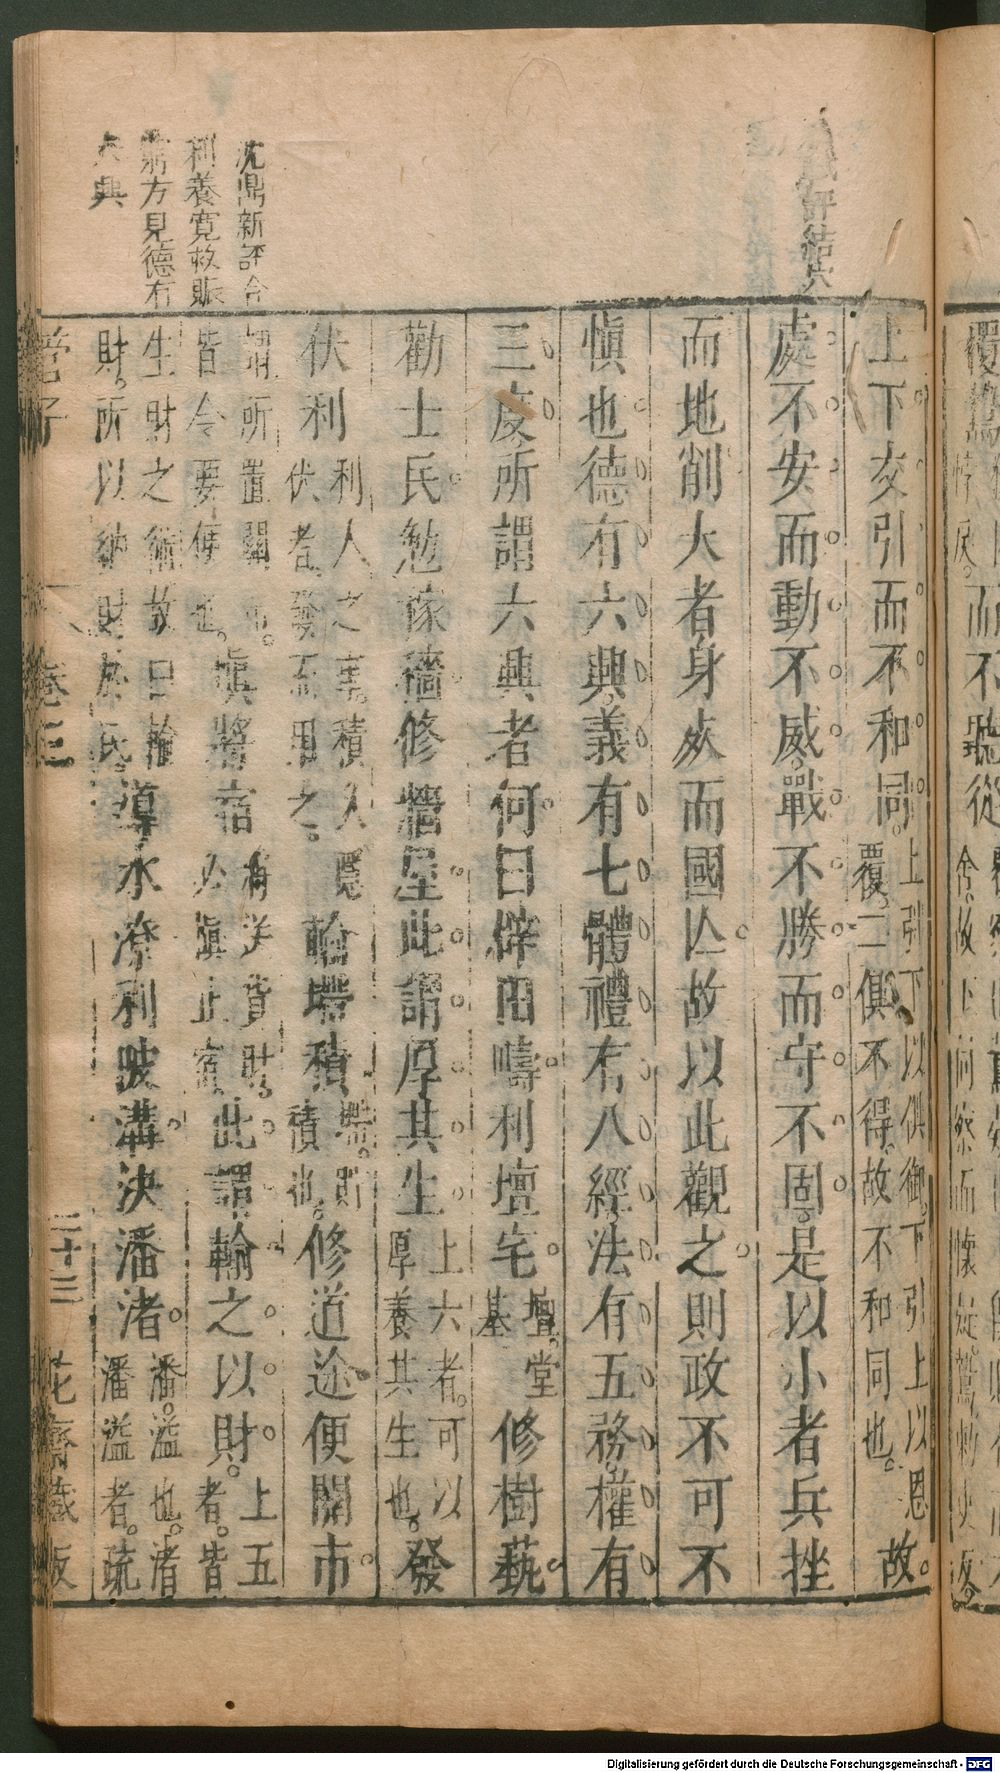 評結穴
沈鼎新評合
利養寛救賑
窮方見德有
六興
上下交引而不和同。上引下以俱御。下引上以恩覆。二俱不得。故不和同也。故
處不安而動不威。戰不勝而守不固。是以小者兵挫
而地削大者身殀而國亾故以此觀之則政不可不
慎也德有六興。義有七體禮有八經。法有五務。權有
三度。所謂六興者何。曰辟田疇利壇宅。壇。堂基修樹蓺。
勸士民勉稼穡修牆屋。此謂厚其生上六者。可以厚養其生也。發
伏利利人之害。積入隱伏者。發而用之。輸墆積墆。貯積也。修道途便關市
謂所置關市。皆令要便也。慎將宿有送貨財。必慎止宿此謂輸之以財。上五者。皆
生財之術故曰輸財。所以納財於民。導水潦利陂溝。決潘渚。潘。溢也。渚潘溢者。疏
管子
卷三
二十三
花齋藏板
而不聽從
Digitalisierung gefördert durch die Deutsche Forschungsgemeinschaft - DFG